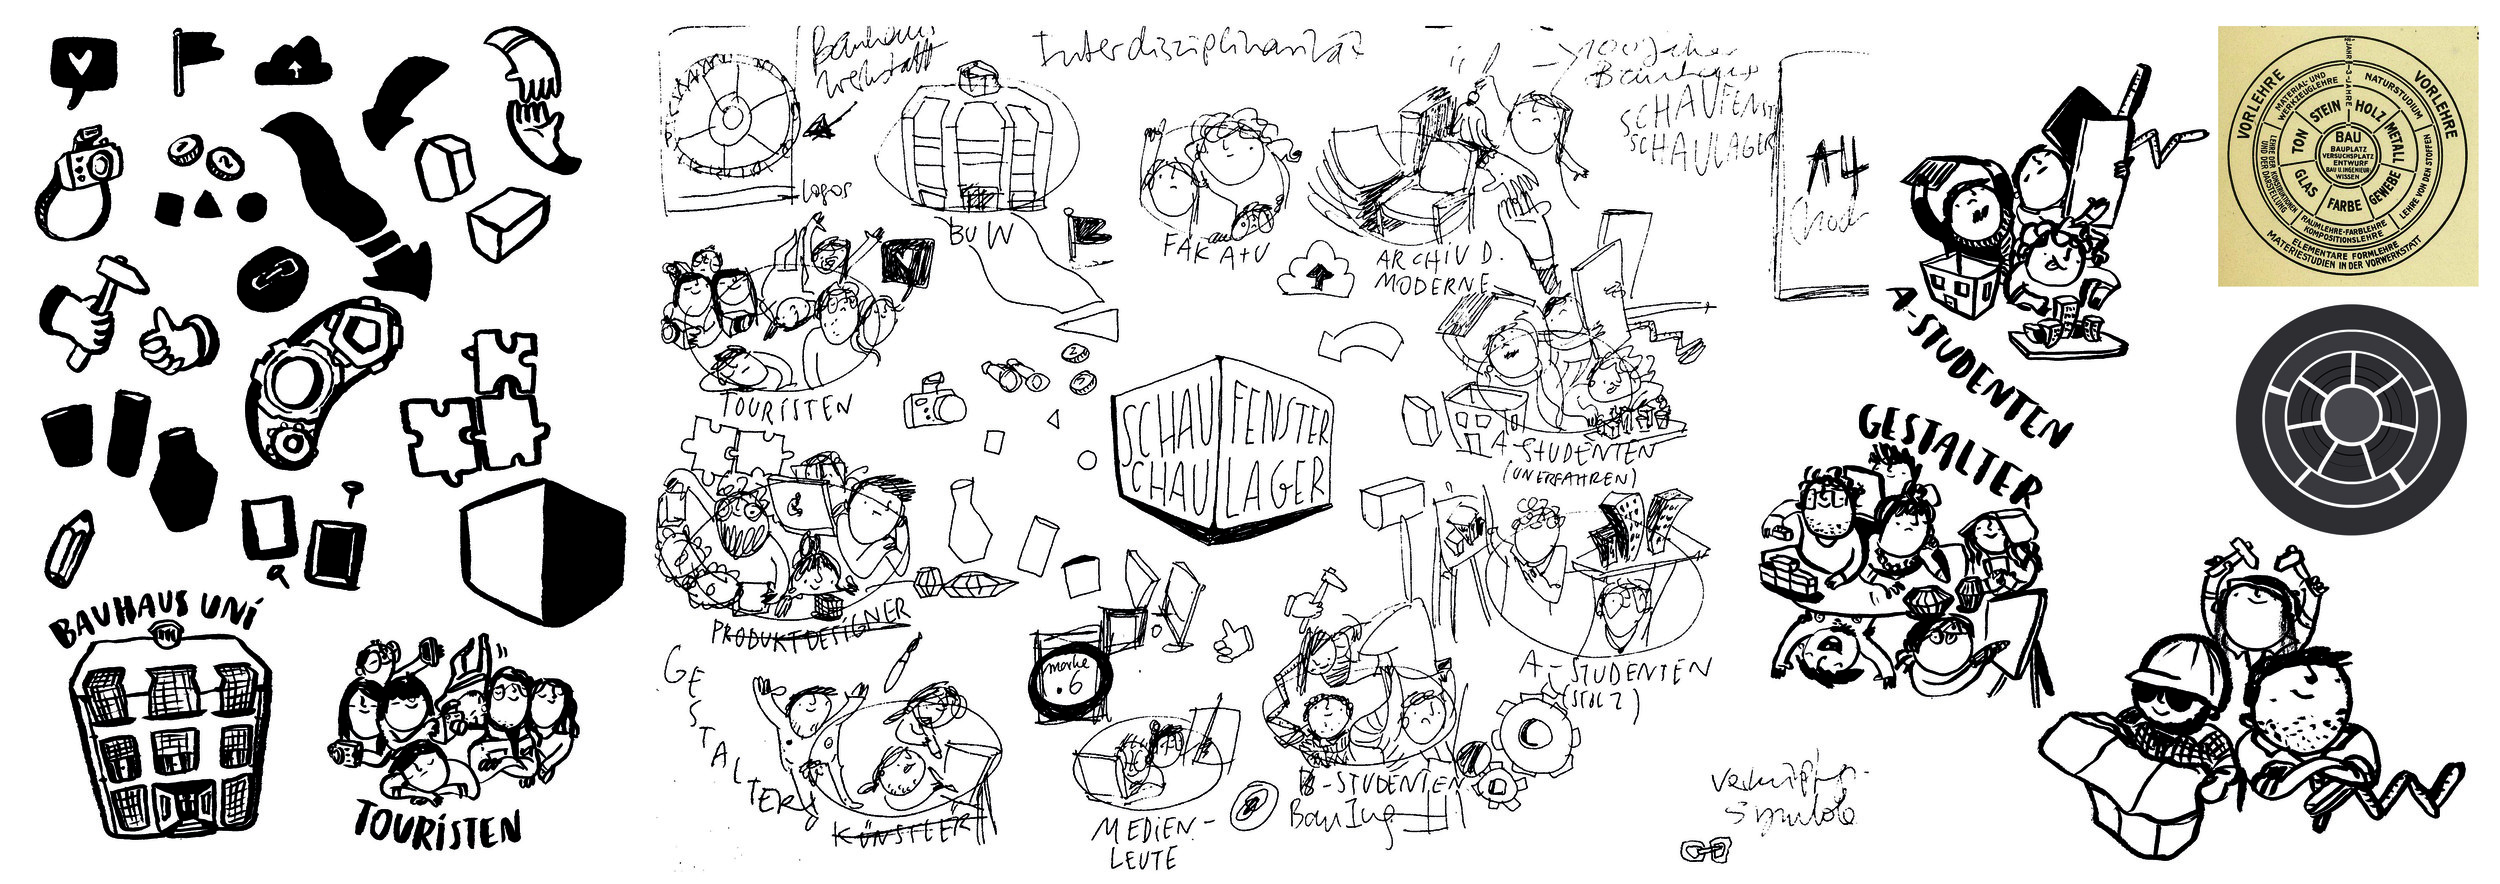 BAUHAUS UNI
TOURISTEN
Bauhaus
Werkstatt
Logos
Interdisziplinarität
100 Jahre
Bauhaus
SCHAUFENST
SCHAULAGER
BUW
FAK A+U
ARCHIV D.
MODERNE
TOURISTEN
SCHAU FENSTER
SCHAU LAGER
A-STUDENTEN
(UNERFAHREN)
PRODUKTDESIGNER
GESTALTER
KÜNSTLER
marke
.6
MEDIEN-
LEUTE
B-STUDENTEN
BauIng
A-STUDENTEN
(STOLZ)
Symbole
A4
2
2
A-STUDENTEN
GESTALTER
VORLEHRE
VORLEHRE
½ JAHR
3-JAHRE
MATERIAL- UND
WERKZEUGLEHRE
NATURSTUDIUM
LEHRE VON DEN STOFFEN
RAUMLEHRE-FARBLEHRE
KOMPOSITIONSLEHRE
LEHRE DER KONSTRUKTIONEN
UND DER DARSTELLUNG
ELEMENTARE FORMLEHRE
MATERIESTUDIEN IN DER VORWERKSTATT
STEIN
HOLZ
METALL
GEWEBE
FARBE
GLAS
TON
BAU
BAUPLATZ
VERSUCHSPLATZ
ENTWURF
BAU U. INGENIEUR
WISSEN